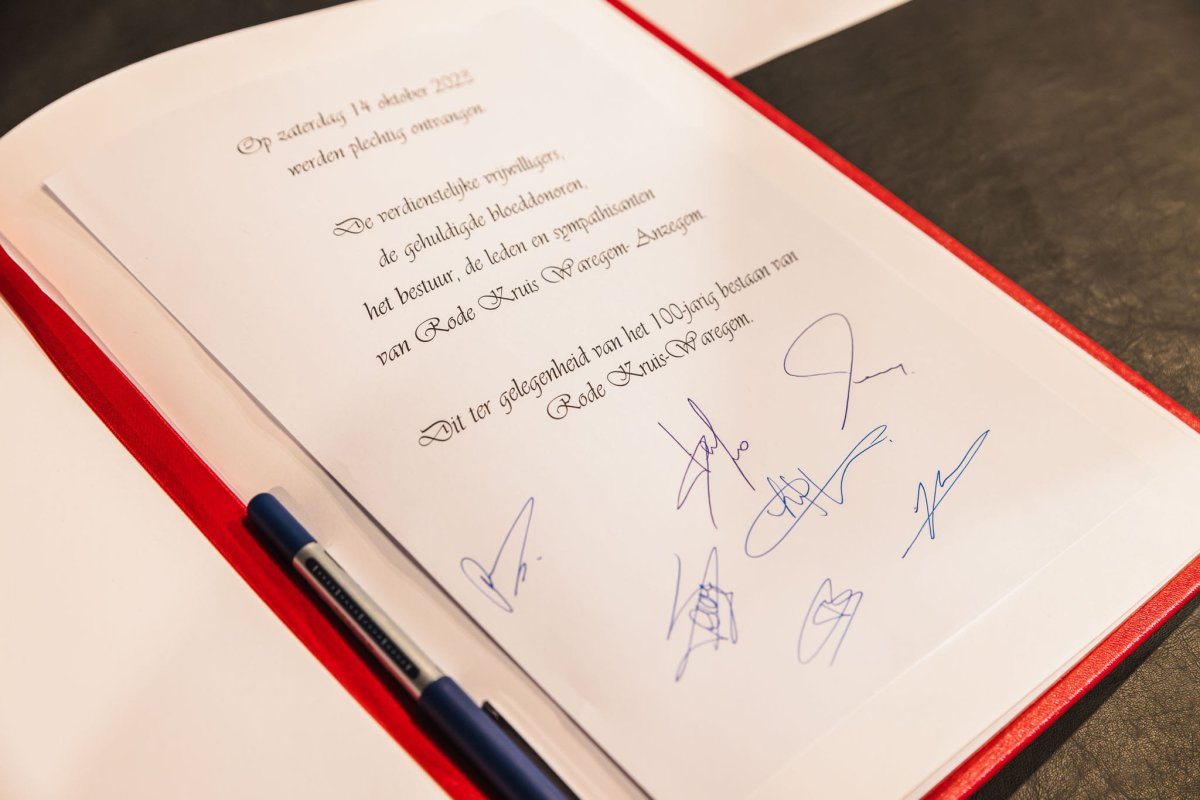 Op zaterdag 14 oktober 2023
werden plechtig ontvangen.
De verdienstelijke vrijwilligers,
de gehuldigde bloeddonoren,
het bestuur, de leden en sympathisanten
van Rode Kruis Waregem- Anzegem.
Dit ter gelegenheid van het 100-jarig bestaan van
Rode Kruis-Waregem.